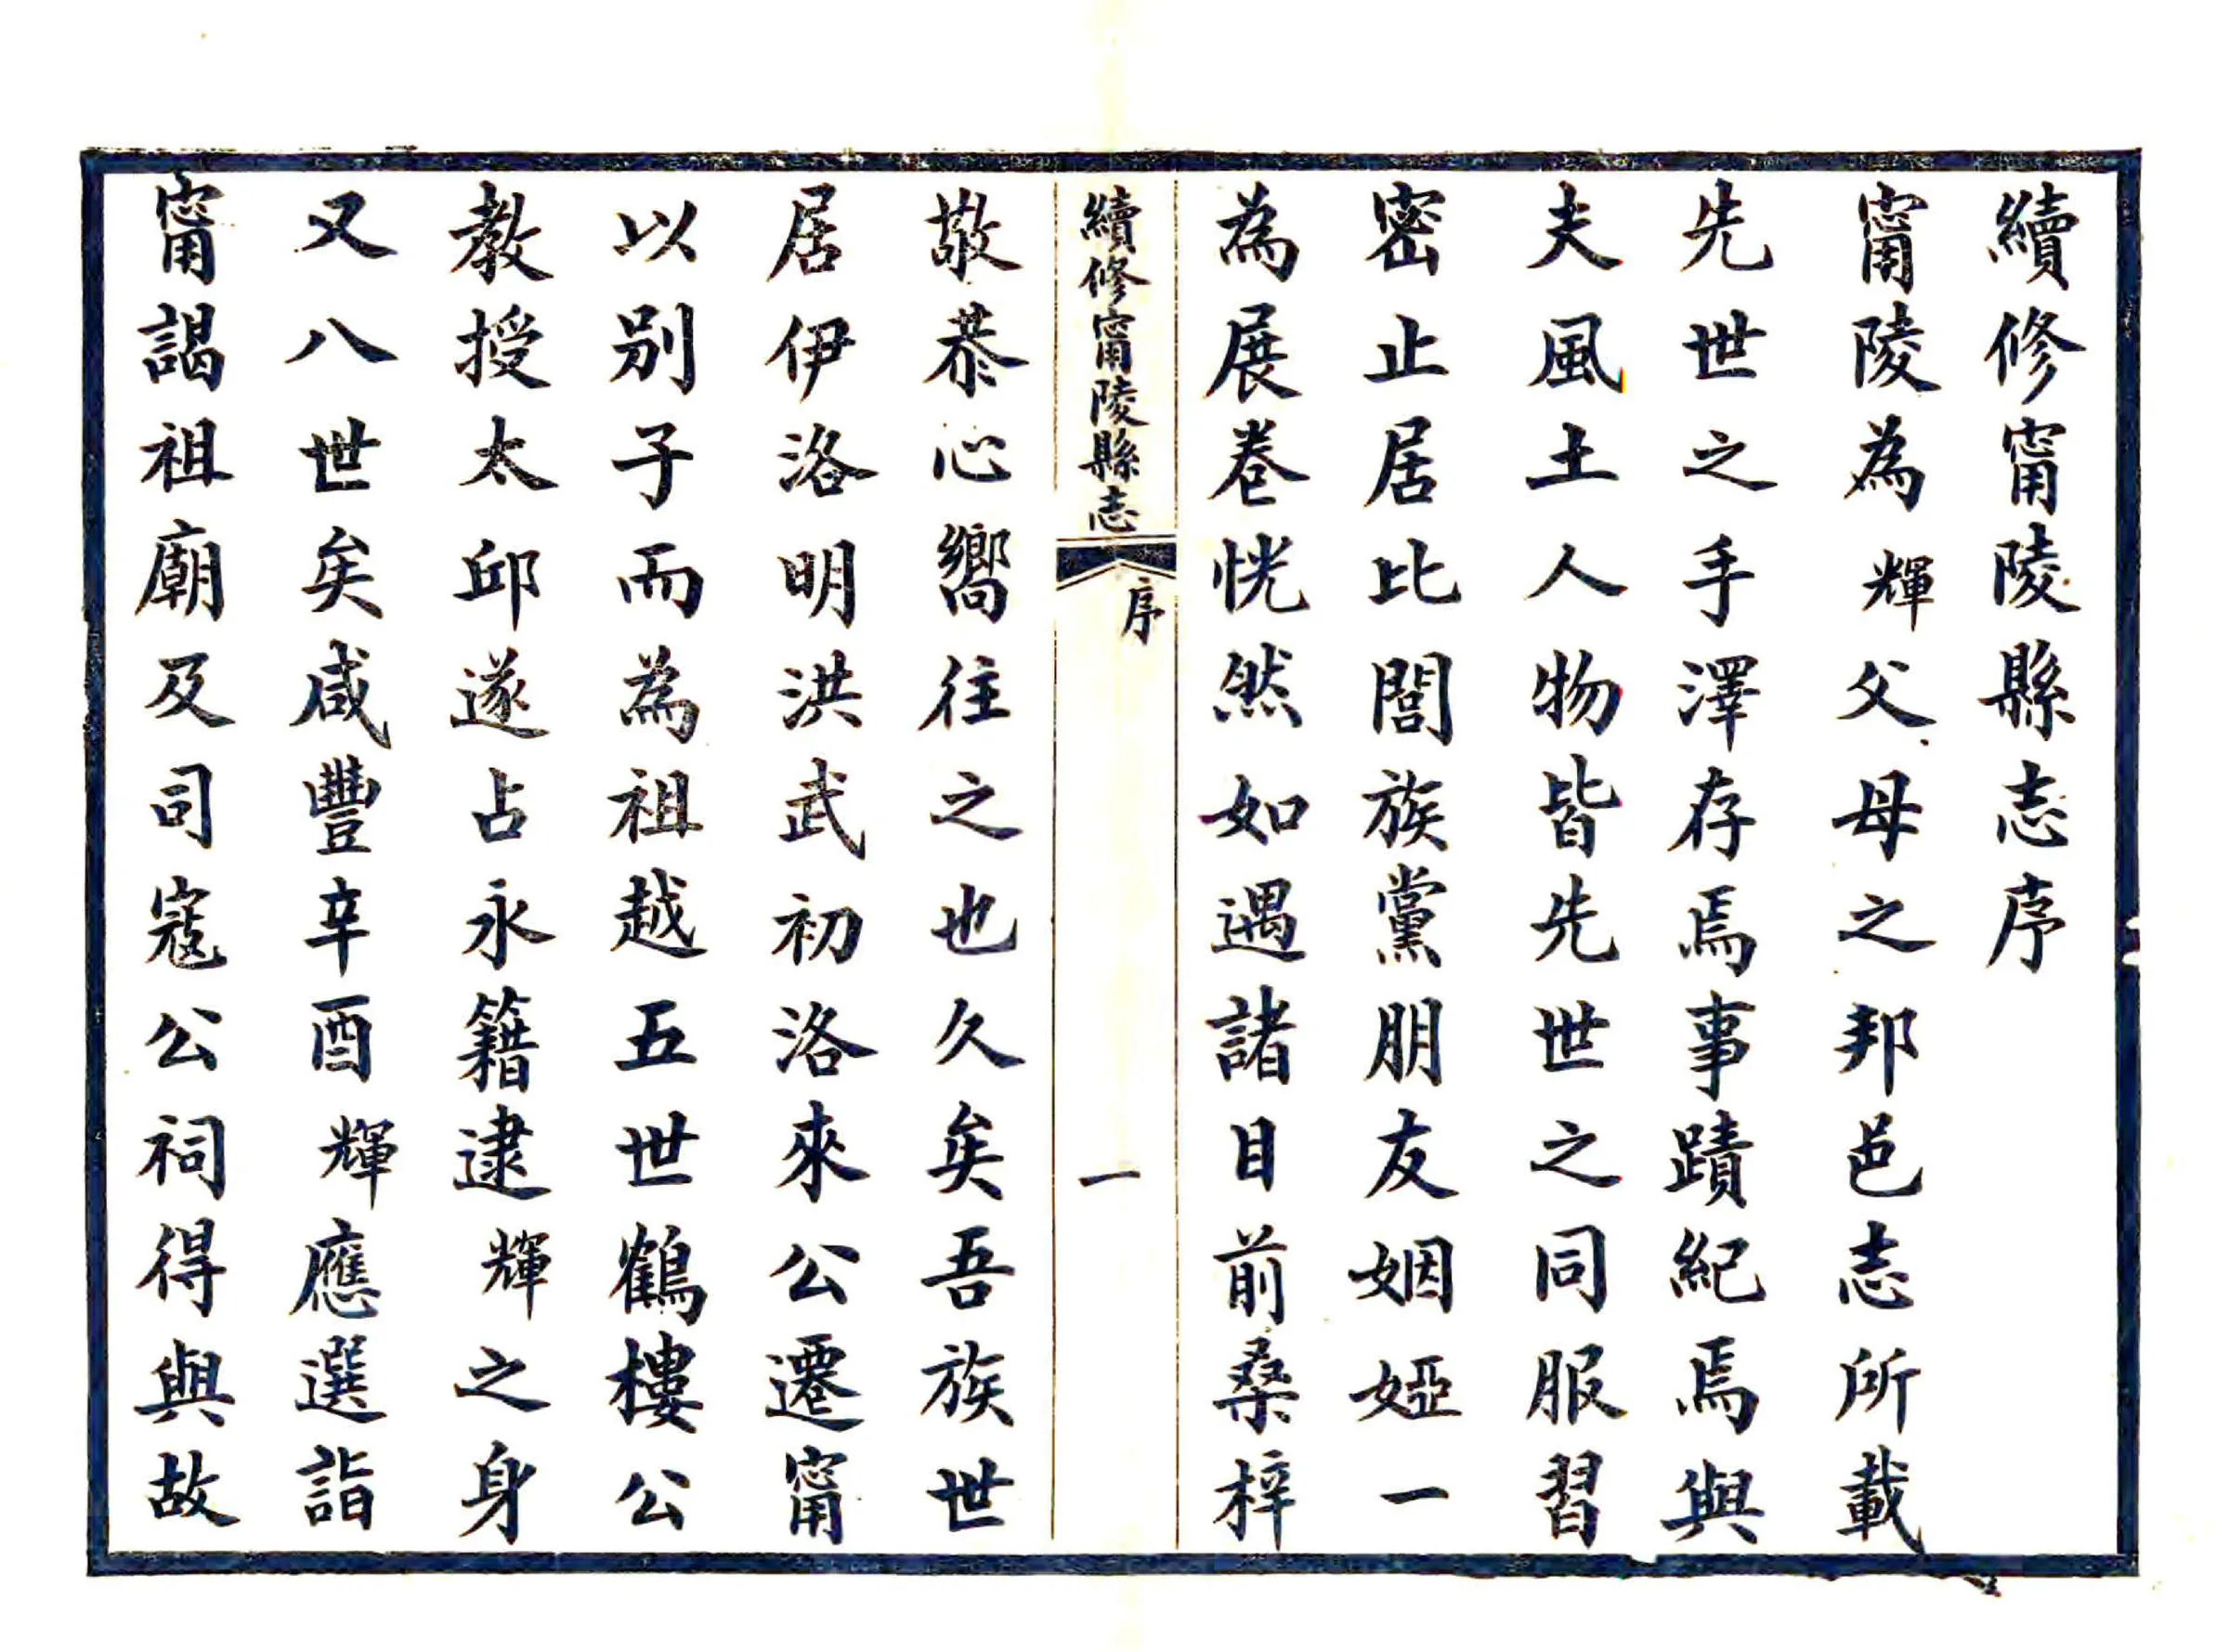 續修甯陵縣志序
甯陵為輝父母之邦邑志所載
先世之手澤存焉事蹟紀焉與
夫風土人物皆先世之同服習
密止居比閭族黨朋友姻婭一
為展卷恍然如遇諸目前桑梓
續修甯陵縣志
序
一
敬恭心嚮往之也久矣吾族世
居伊洛明洪武初洛來公遷甯
以別子而為祖越五世鶴樓公
教授太邱遂占永籍逮輝之身
又八世矣咸豐辛酉輝應選詣
甯謁祖廟及司寇公祠得與故